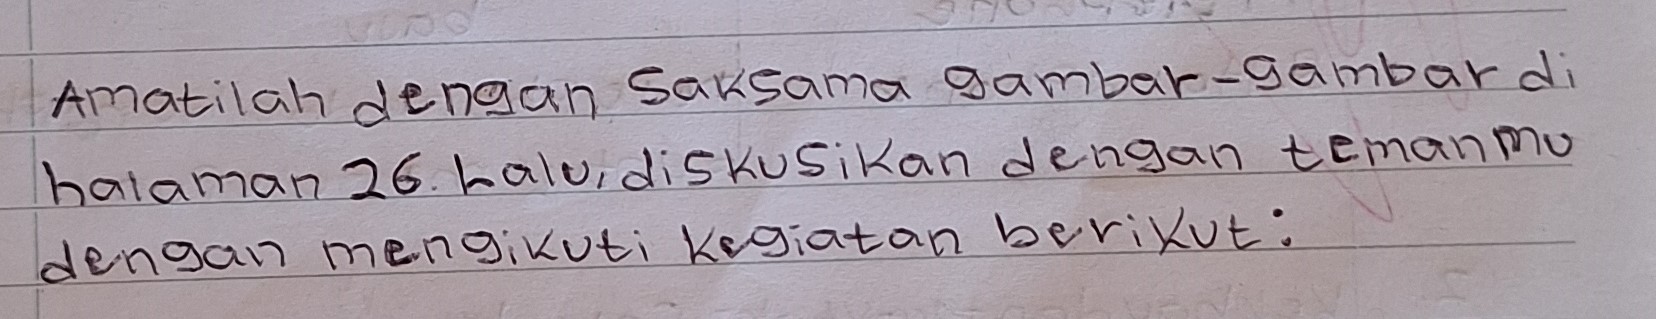 Amatilah dengan saksama gambar-gambar di
halaman 26. Lalu, diskusikan dengan temanmu
dengan mengikuti kegiatan berikut: